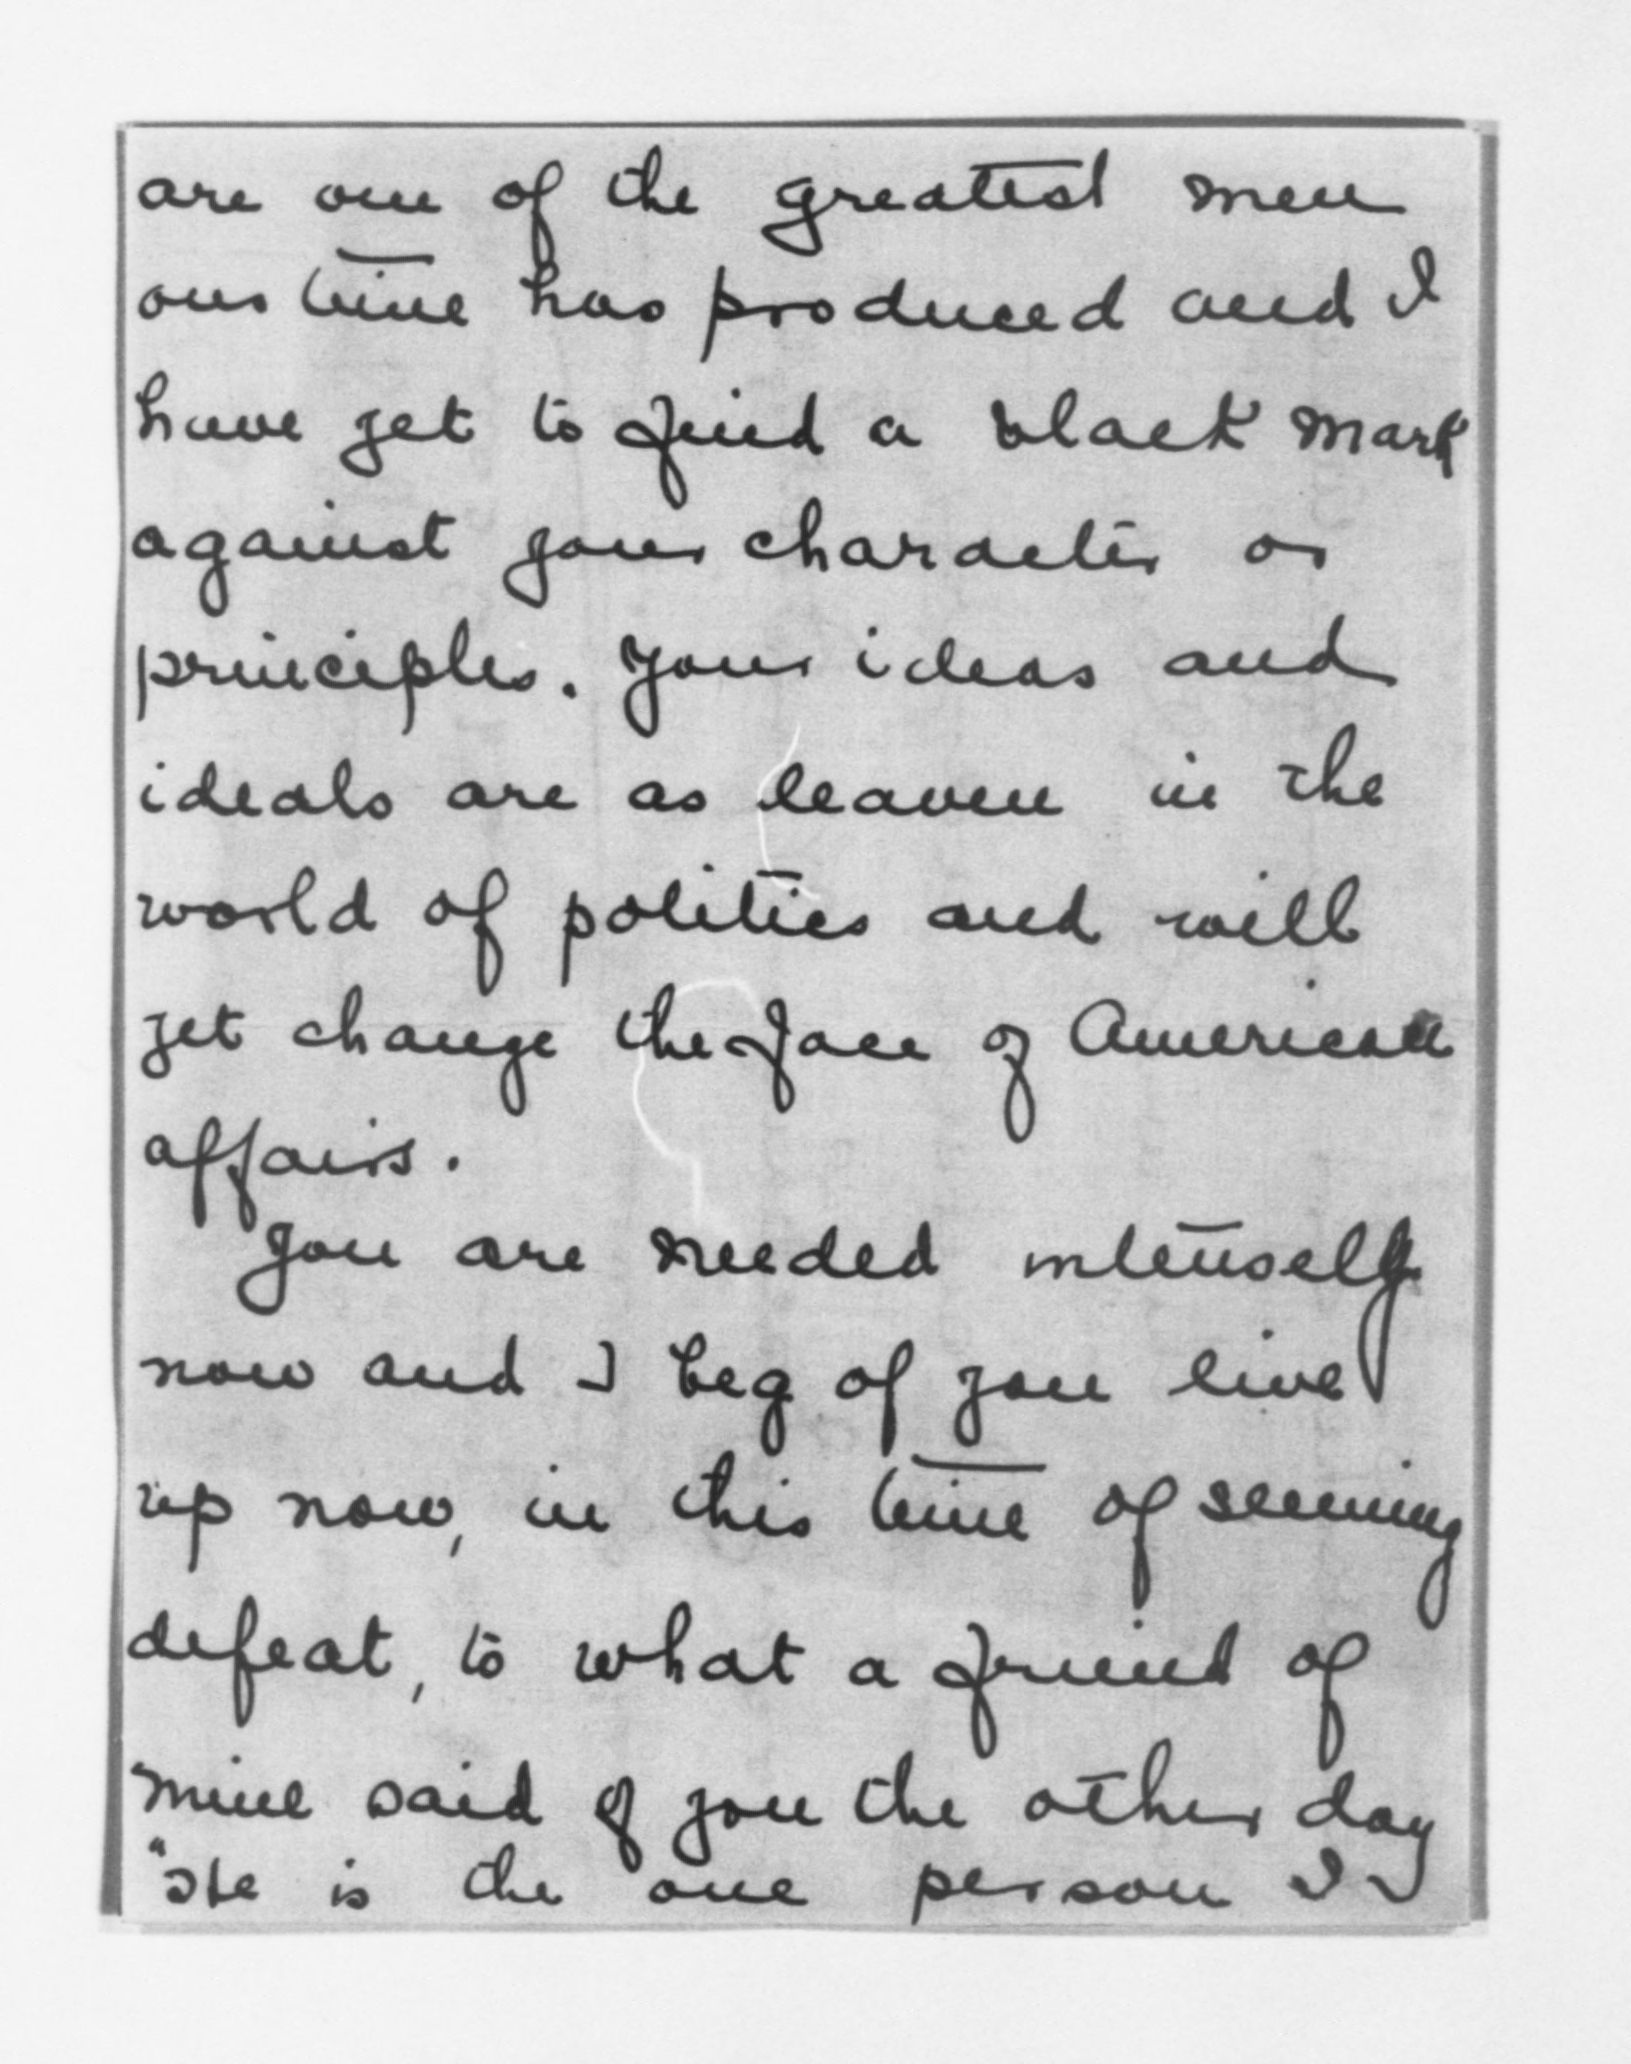 are one of the greatest men
our time has produced and I
have yet to find a black mark
against your character or
principles. Your ideas and
ideals are as leaven in the
world of politics and will
yet change the face of American
affairs.
You are needed intensely
now and I beg of you live
up now, in this time of seeming
defeat, to what a friend of
mine said of you the other day
"He is the one person I